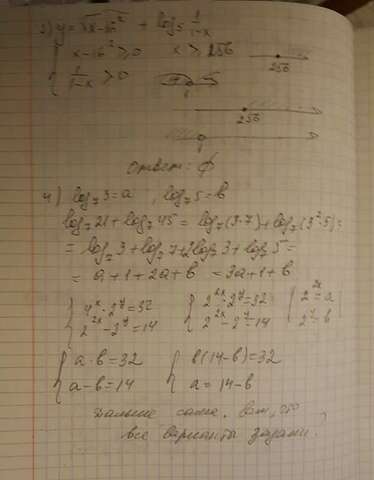 3) y = √(x-16²) + log₅ 1/(1-x)
{ x-16² ≥ 0   x ≥ 256   256
1/(1-x) > 0   1
256
1
Ответ: ∅
4) log₇3 = a, log₇5 = b
log₇21 + log₇45 = log₇(3·7) + log₇(3²·5) =
= log₇3 + log₇7 + 2log₇3 + log₇5 =
= a + 1 + 2a + b = 3a + 1 + b
{ 4ˣ·2ʸ = 32   { 2²ˣ·2ʸ = 32   { 2²ˣ = a
2²ˣ - 2ʸ = 14   2²ˣ - 2ʸ = 14   2ʸ = b
{ a·b = 32   { b(14-b) = 32
a-b = 14   a = 14-b
Дальше сама. Вот, это
все варианты задани.